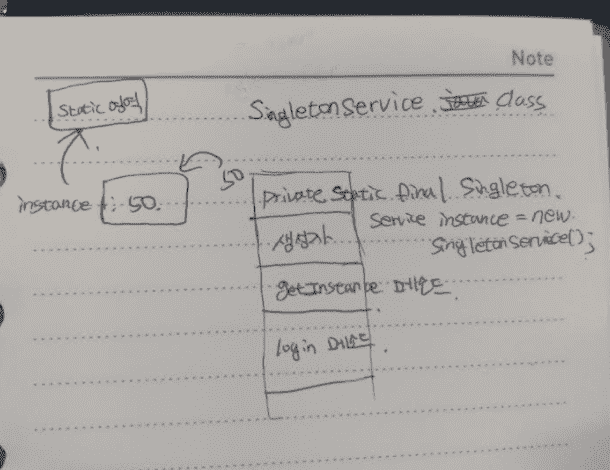 Note
Static 영역
SingletonService . class
instance : 50.
50
private static final Singleton.
Service instance = new.
SingletonService();
생성자
getInstance 메소드.
login 메소드.